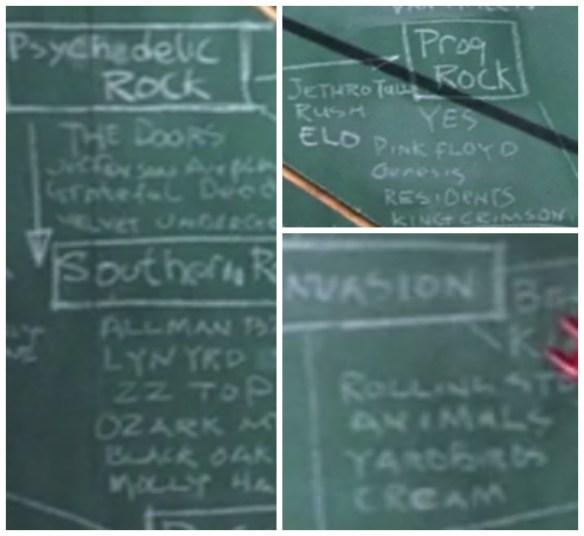 Psychedelic
Rock
THE DOORS
Jefferson Airpla
Grateful Dead
VELVET UNDERG
Southern R
ALLMAN B
LYNYRD
ZZ TOP
OZARK M
BLACK OAK
MOLLY HA
Prog
Rock
JETHRO Tull
RUSH
ELO
YES
PINK FLOYD
Genesis
RESIDENTS
KING CRIMSON
NVASION
K
ROLLING STO
ANIMALS
YARDBIRDS
CREAM